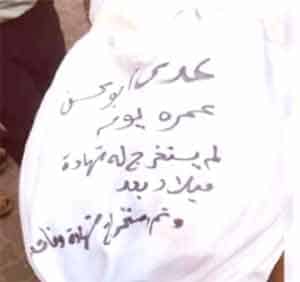 عدي / أبو محسن
عمره يوم
لم يستخرج له شهادة
ميلاد بعد
وتم استخراج شهادة وفاته